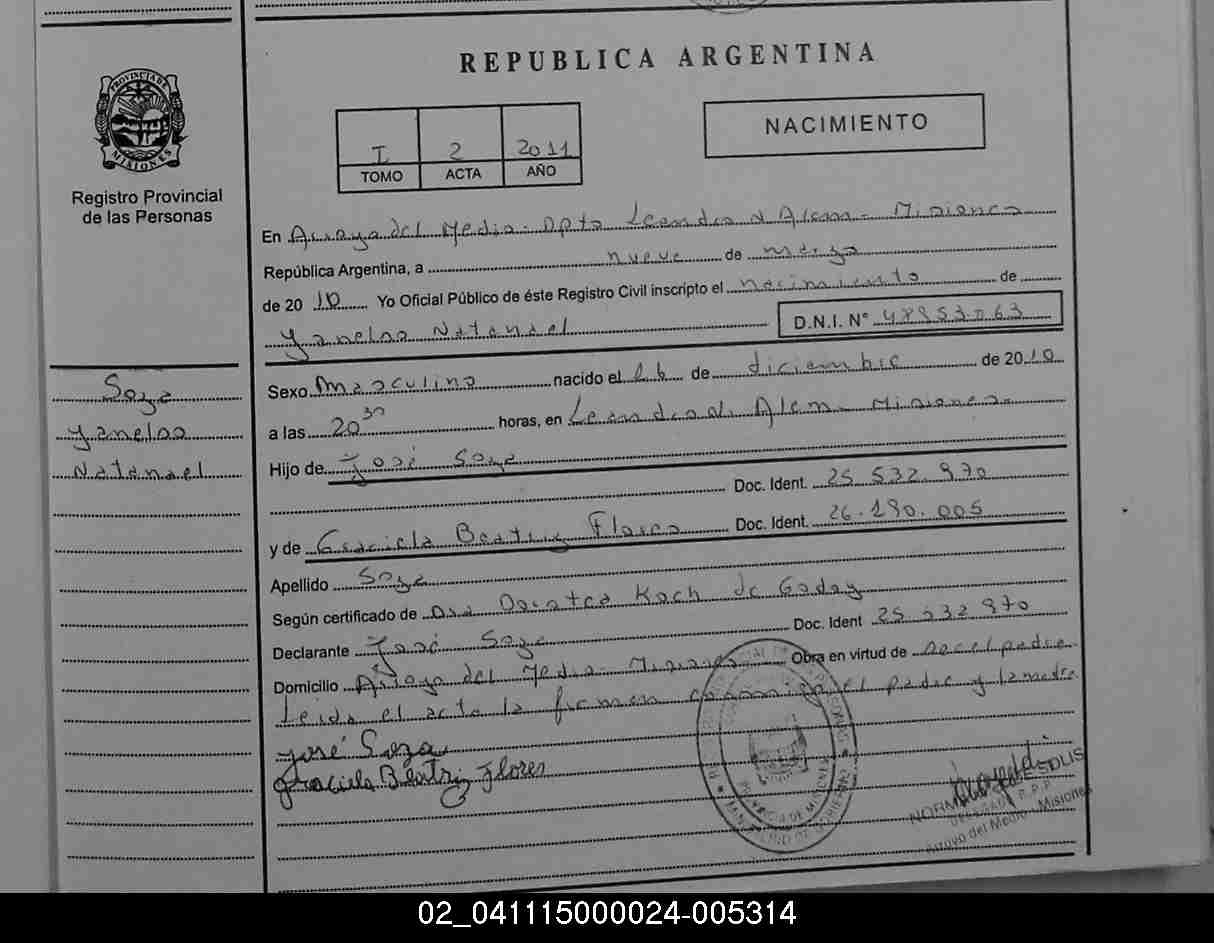 REPUBLICA ARGENTINA
PROVINCIA DE MISIONES
Registro Provincial
de las Personas
I 2 2011
TOMO ACTA AÑO
NACIMIENTO
En Arroyo del Medio. Dpto Leandro N Alem - Misiones
República Argentina, a nueve de marzo
de 20 10 Yo Oficial Público de éste Registro Civil inscripto el nacimiento de
Yanelso Natanael D.N.I. Nº
Soza
Yanelso
Natanael
Sexo Masculino nacido el de diciembre de 2010
a las 20 30 horas, en Leandro N. Alem - Misiones
Hijo de José Soza
Doc. Ident. 25 532.970
y de Graciela Beatriz Flores Doc. Ident. 26.190.005
Apellido Soza
Según certificado de Dra Dorotea Koch de Godoy
Declarante José Soza Doc. Ident 25 532 970
Domicilio Arroyo del Medio - Misiones Obra en virtud de ser el padre
Leida el acta la firman conmigo el padre y la madre
José Soza
Graciela Beatriz Flores
SOLIS
R.P.P.
Arroyo del Medio - Misiones
02_041115000024-005314